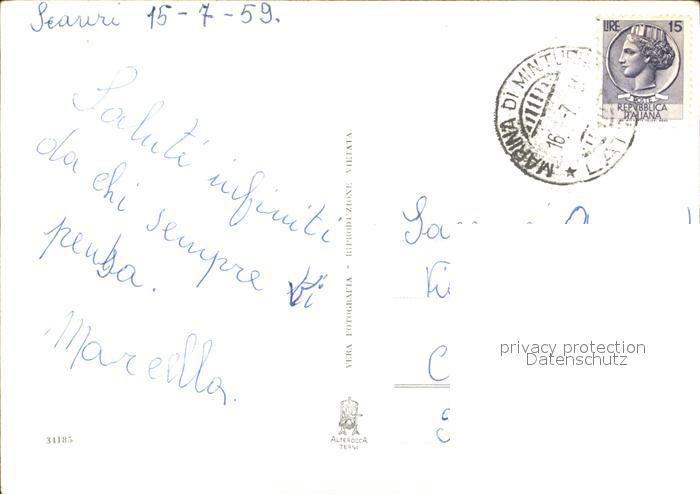 Scauri 15-7-59.
Saluti infiniti
da chi sempre ti
pensa.
Marcella.
34185
VERA FOTOGRAFIA - RIPRODUZIONE VIETATA
ALTEROCCA
TERNI
LIRE 15
POSTE
REPVBBLICA
ITALIANA
MARINA DI MINTURN
LAT
16 -7
privacy protection
Datenschutz